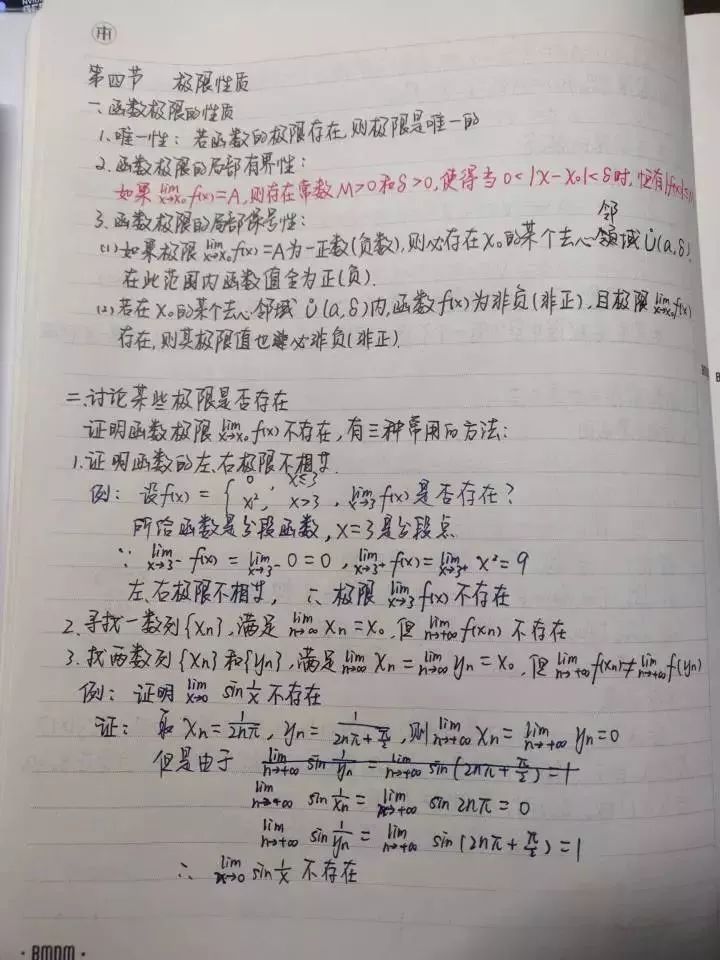 第四节 极限性质
一、函数极限的性质
1.唯一性：若函数的极限存在，则极限是唯一的
2.函数极限的局部有界性：
如果lim x→x₀ f(x)=A，则存在常数M>0和δ>0，使得当0<|x-x₀|<δ时，恒有|f(x)|≤
3.函数极限的局部保号性：
邻
(1)如果极限lim x→x₀ f(x)=A为一正数(负数)，则必存在x₀的某个去心领域Ů(a,δ)，
在此范围内函数值全为正(负).
(2)若在x₀的某个去心邻域Ů(a,δ)内，函数f(x)为非负(非正)，且极限lim x→x₀ f(x)
存在，则其极限值也必非负(非正).
二、讨论某些极限是否存在
证明函数极限lim x→x₀ f(x)不存在，有三种常用的方法：
1.证明函数的左、右极限不相等.
例：设f(x)={0, x≤3; x², x>3，lim x→3 f(x)是否存在？
所给函数是分段函数，x=3是分段点
∵ lim x→3⁻ f(x)=lim x→3⁻ 0=0，lim x→3⁺ f(x)=lim x→3⁺ x²=9
左、右极限不相等，∴极限lim x→3 f(x)不存在
2.寻找一数列{xn}，满足lim n→∞ xn=x₀，但lim n→+∞ f(xn)不存在
3.找两数列{xn}和{yn}，满足lim n→∞ xn=lim n→∞ yn=x₀，但lim n→+∞ f(xn)≠lim n→+∞ f(yn)
例：证明lim x→0 sin 1/x 不存在
证：取xn=1/(2nπ)，yn=1/(2nπ+π/2)，则lim n→+∞ xn=lim n→+∞ yn=0
但是由于 lim n→+∞ sin 1/yn=lim n→+∞ sin(2nπ+π/2)=1
lim n→+∞ sin 1/xn=lim n→+∞ sin 2nπ=0
lim n→+∞ sin 1/yn=lim n→+∞ sin(2nπ+π/2)=1
∴ lim x→0 sin 1/x 不存在
·BMDM·